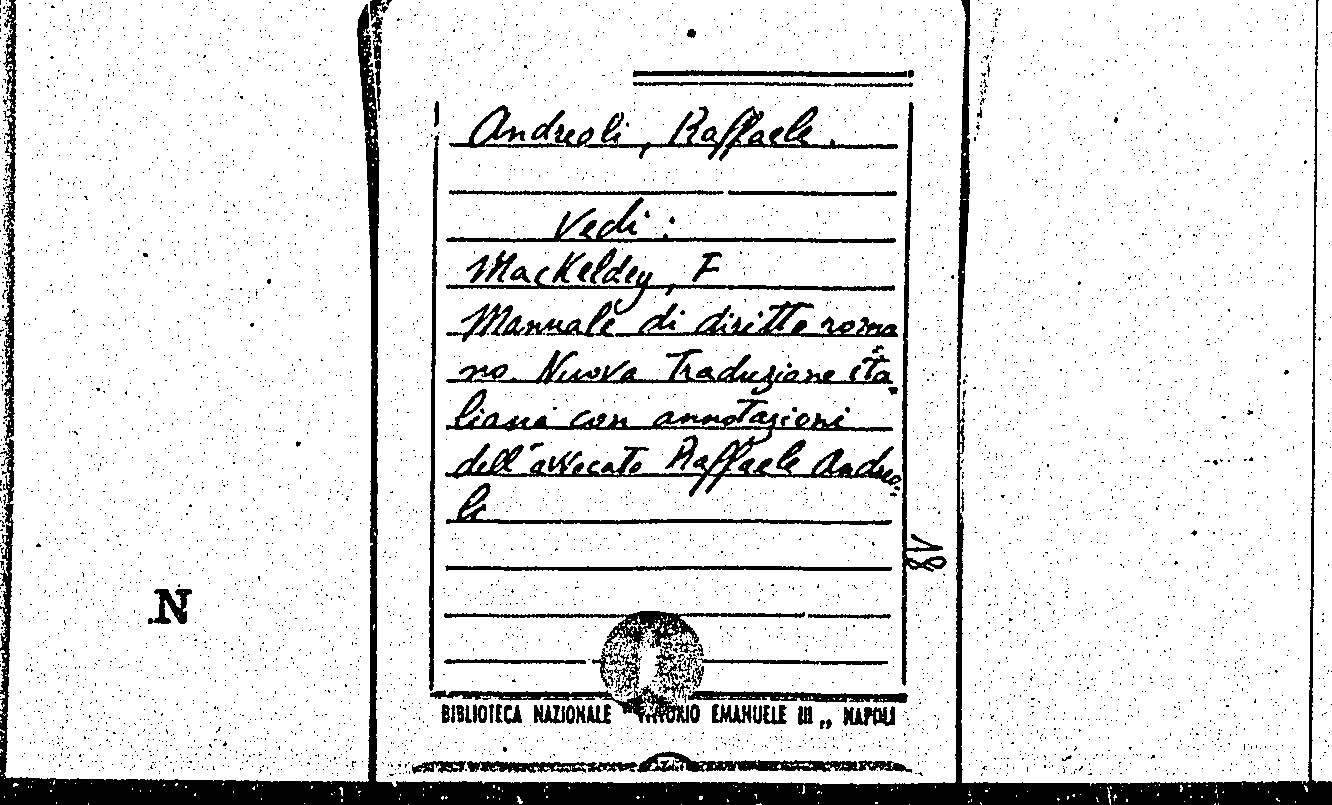 Andreoli, Raffaele.
Vedi:
Mackeldey, F
Manuale di diritto roma
no. Nuova Traduzione ita
liana con annotazioni
dell'avvocato Raffaele Andreo-
li
8V
N
BIBLIOTECA NAZIONALE "VITTORIO EMANUELE III„ NAPOLI